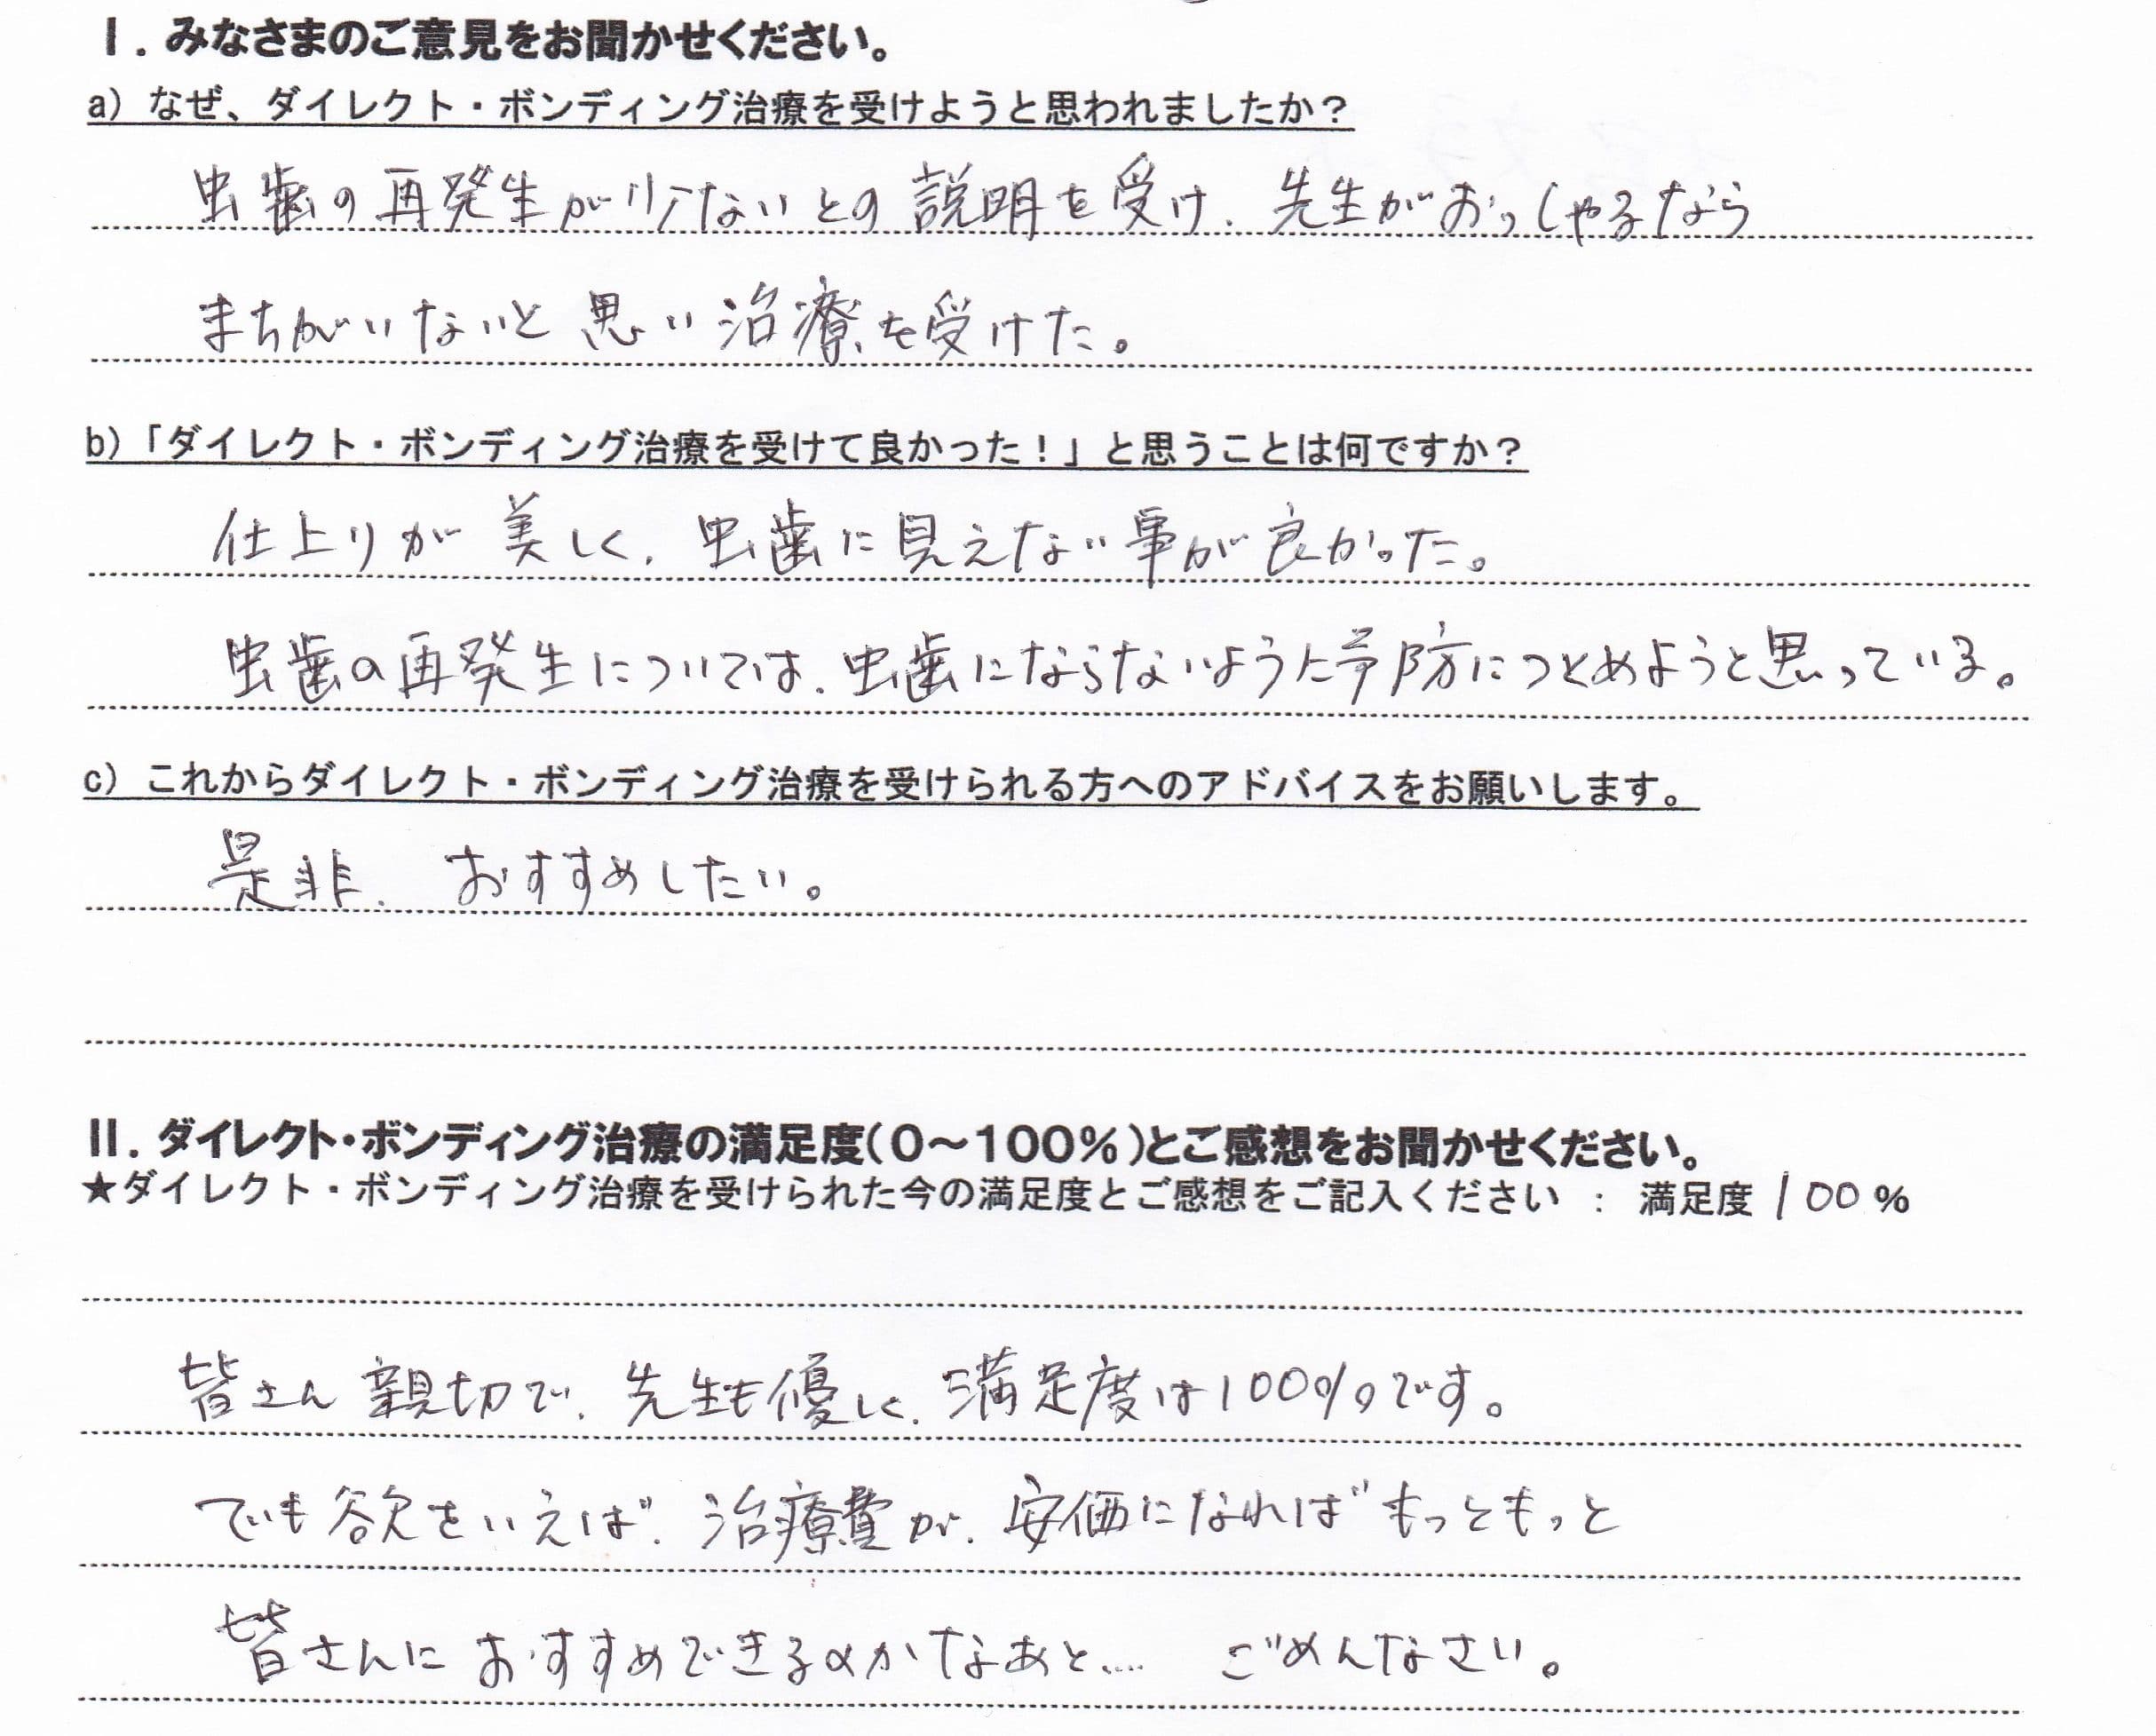 Ⅰ. みなさまのご意見をお聞かせください。
a) なぜ、ダイレクト・ボンディング治療を受けようと思われましたか？
虫歯の再発生が少ないとの説明を受け、先生がおっしゃるなら
まちがいないと思い治療を受けた。
b)「ダイレクト・ボンディング治療を受けて良かった！」と思うことは何ですか？
仕上りが美しく、虫歯に見えない事が良かった。
虫歯の再発生については、虫歯にならないように予防につとめようと思っている。
c) これからダイレクト・ボンディング治療を受けられる方へのアドバイスをお願いします。
是非、おすすめしたい。
Ⅱ. ダイレクト・ボンディング治療の満足度(０～１００％)とご感想をお聞かせください。
★ダイレクト・ボンディング治療を受けられた今の満足度とご感想をご記入ください ： 満足度 100 %
皆さん親切で、先生も優しく、満足度は100%です。
でも欲をいえば、治療費が、安価になればもっともっと
皆さんにおすすめできるのかなあと…. ごめんなさい。